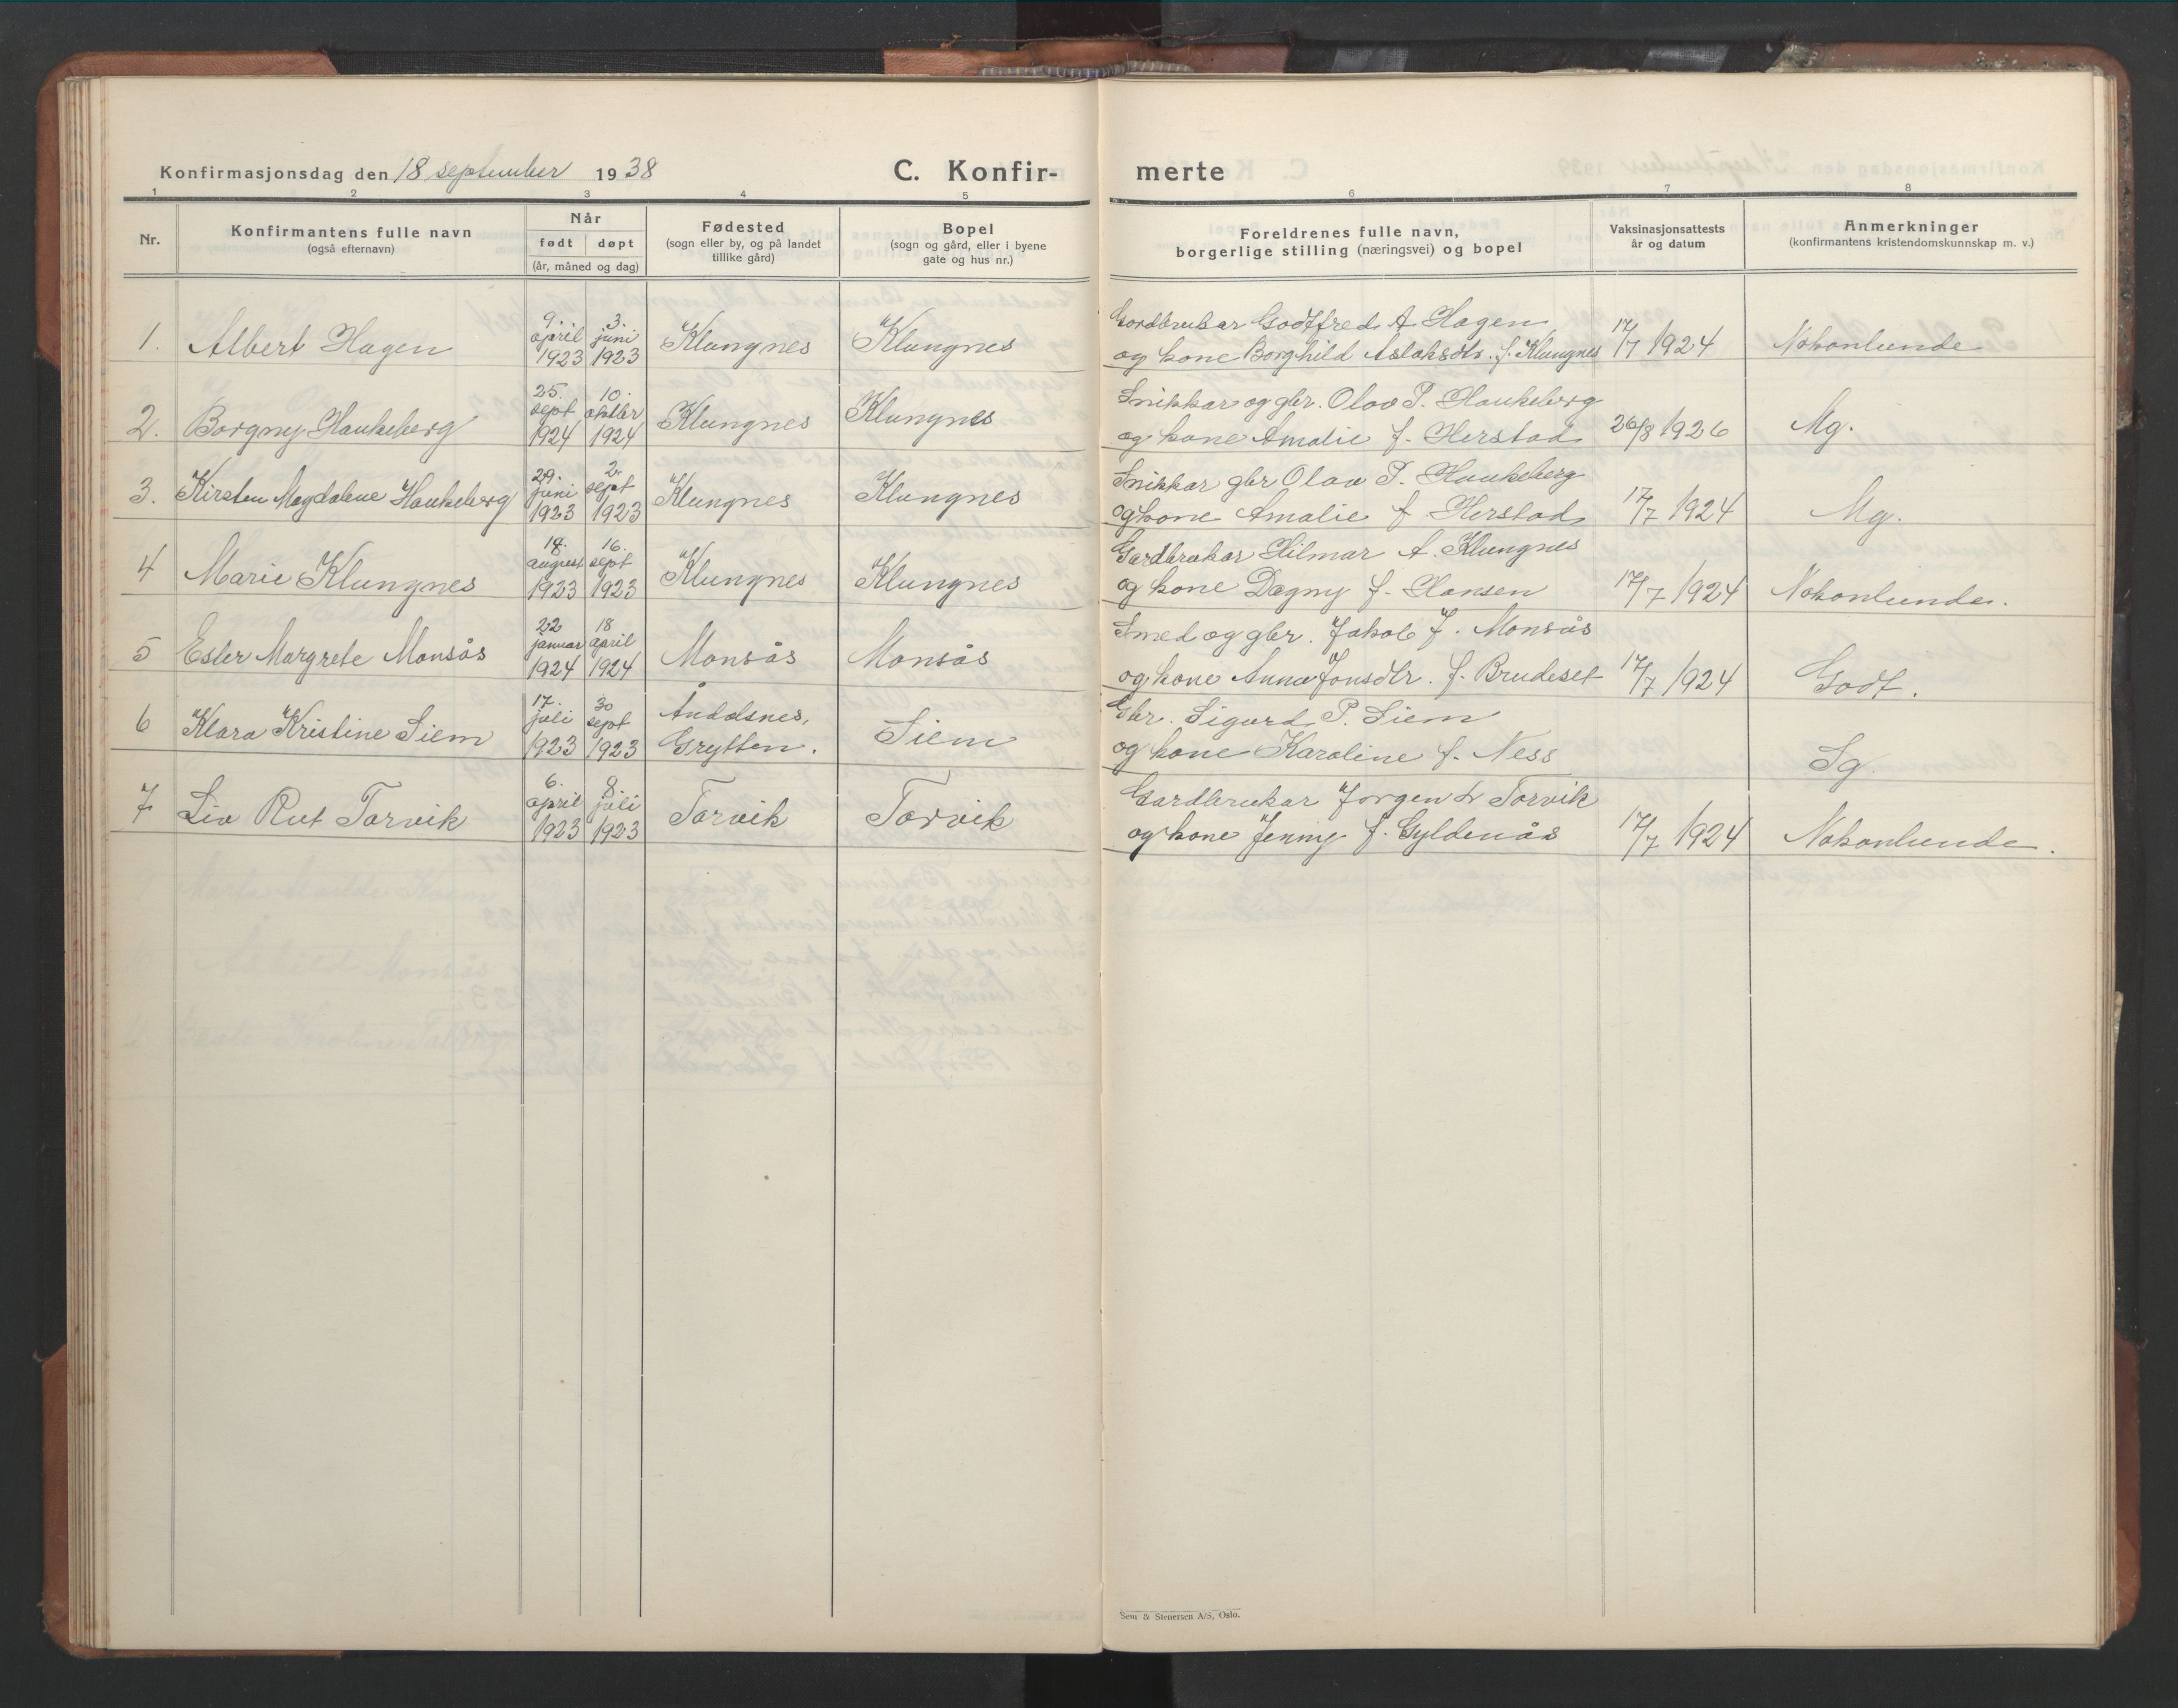 Konfirmasjonsdag den 18 september 1938
C. Konfir-
merte
1 2 3 4 5 6 7 8
Nr.
Konfirmantens fulle navn
(også efternavn)
Når
født døpt
(år, måned og dag)
Fødested
(sogn eller by, og på landet
tillike gård)
Bopel
(sogn og gård, eller i byene
gate og hus nr.)
Foreldrenes fulle navn,
borgerlige stilling (næringsvei) og bopel
Vaksinasjonsattests
år og datum
Anmerkninger
(konfirmantens kristendomskunnskap m. v.)
1. Albert Hagen
9. april 1923
3. juni 1923
Klungnes
Klungnes
Gardbrukar Godtfred A Hagen
og kone Borghild Aslaksdtr. f. Klungnes
17/7 1924
Nokonlunde
2. Borgny Haukeberg
25. sept 1924
10. oktbr 1924
Klungnes
Klungnes
Snikkar og gbr. Olav P. Haukeberg
og kone Amalie f. Herstad
26/8 1926
Mg.
3. Kirsten Magdalene Haukeberg
29. juni 1923
2. sept 1923
Klungnes
Klungnes
Snikkar gbr Olav P. Haukeberg
og kone Amalie f Herstad
17/7 1924
Mg.
4 Marie Klungnes
august 1923
16. sept 1923
Klungnes
Klungnes
Gardbrukar Hilmar A. Klungnes
og kone Dagny f. Hansen
17/7 1924
Nokonlunde.
5 Ester Margrete Monsås
22 januar 1924
18 april 1924
Monsås
Monsås
Smed og gbr. Jakob J. Monsås
og kone Anna Jonsdtr. f. Brudeset
17/7 1924
Godt.
6 Klara Kristine Siem
17. juli 1923
30 sept 1923
Åndalsnes,
Grytten.
Siem
Gbr. Sigurd P. Siem
og kone Karoline f. Ness
Sg.
7 Liv Rut Torvik
6. april 1923
8. juli 1923
Torvik
Torvik
Gardbrukar Jorgen Torvik
og kone Jenny f. Gyldenås
17/7 1924
Nokonlunde.
Sem & Stenersen A/S, Oslo.